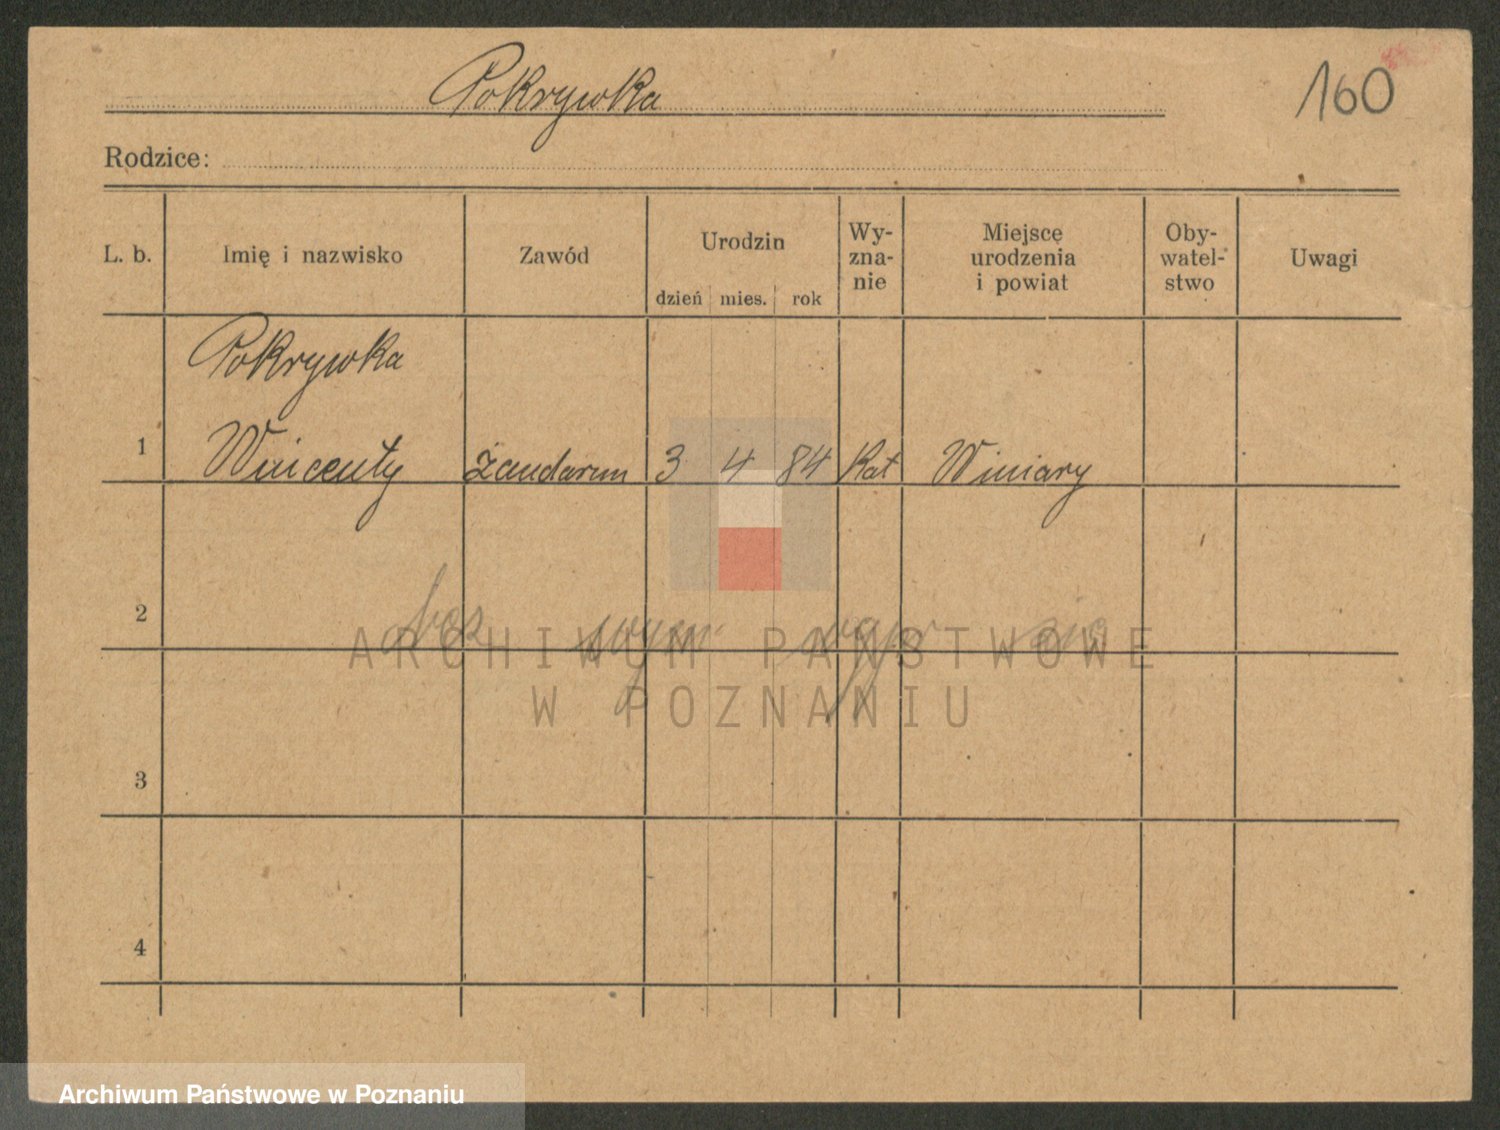 Pokrywka
160
Rodzice:
L. b.
Imię i nazwisko
Zawód
Urodzin
dzień mies. rok
Wy-
zna-
nie
Miejsce
urodzenia
i powiat
Oby-
watel-
stwo
Uwagi
Pokrywka
1 Wincenty żandarm 3 4 84 Kat Winiary
2
bez
ARCHIWUM PAŃSTWOWE
W POZNANIU
3
4
Archiwum Państwowe w Poznaniu